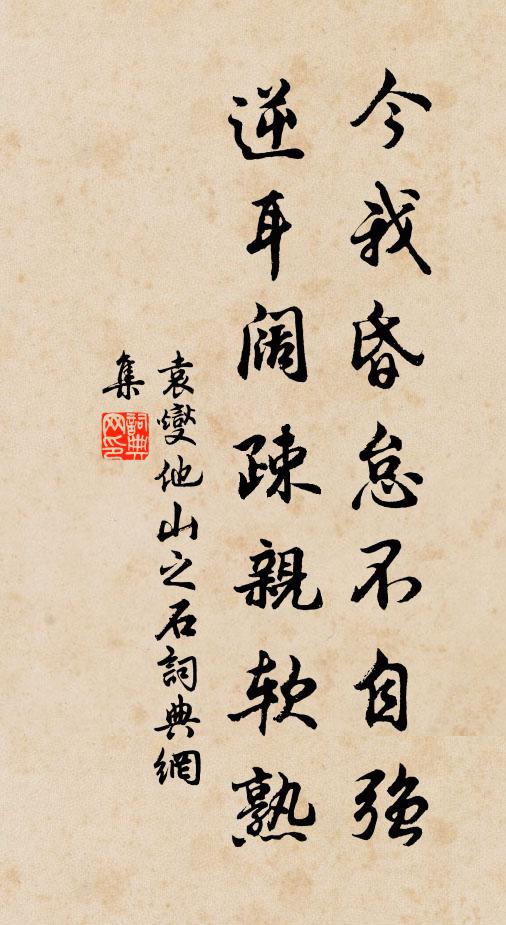 今我昏怠不自強
逆耳阔疎親软熟
袁燮他山之石詞典網
集
詞典
网印